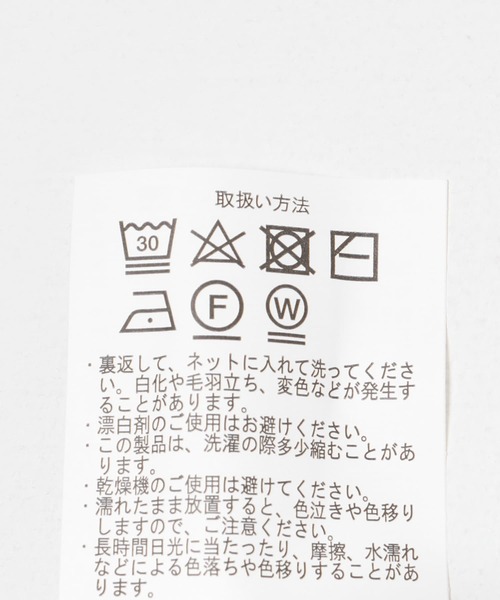 取扱い方法
30
F
W
・裏返して、ネットに入れて洗ってくださ
い。白化や毛羽立ち、変色などが発生す
ることがあります。
・漂白剤のご使用はお避けください。
・この製品は、洗濯の際多少縮むことがあ
ります。
・乾燥機のご使用は避けてください。
・濡れたまま放置すると、色泣きや色移り
しますので、ご注意ください。
・長時間日光に当たったり、摩擦、水濡れ
などによる色落ちや色移りすることがあ
ります。